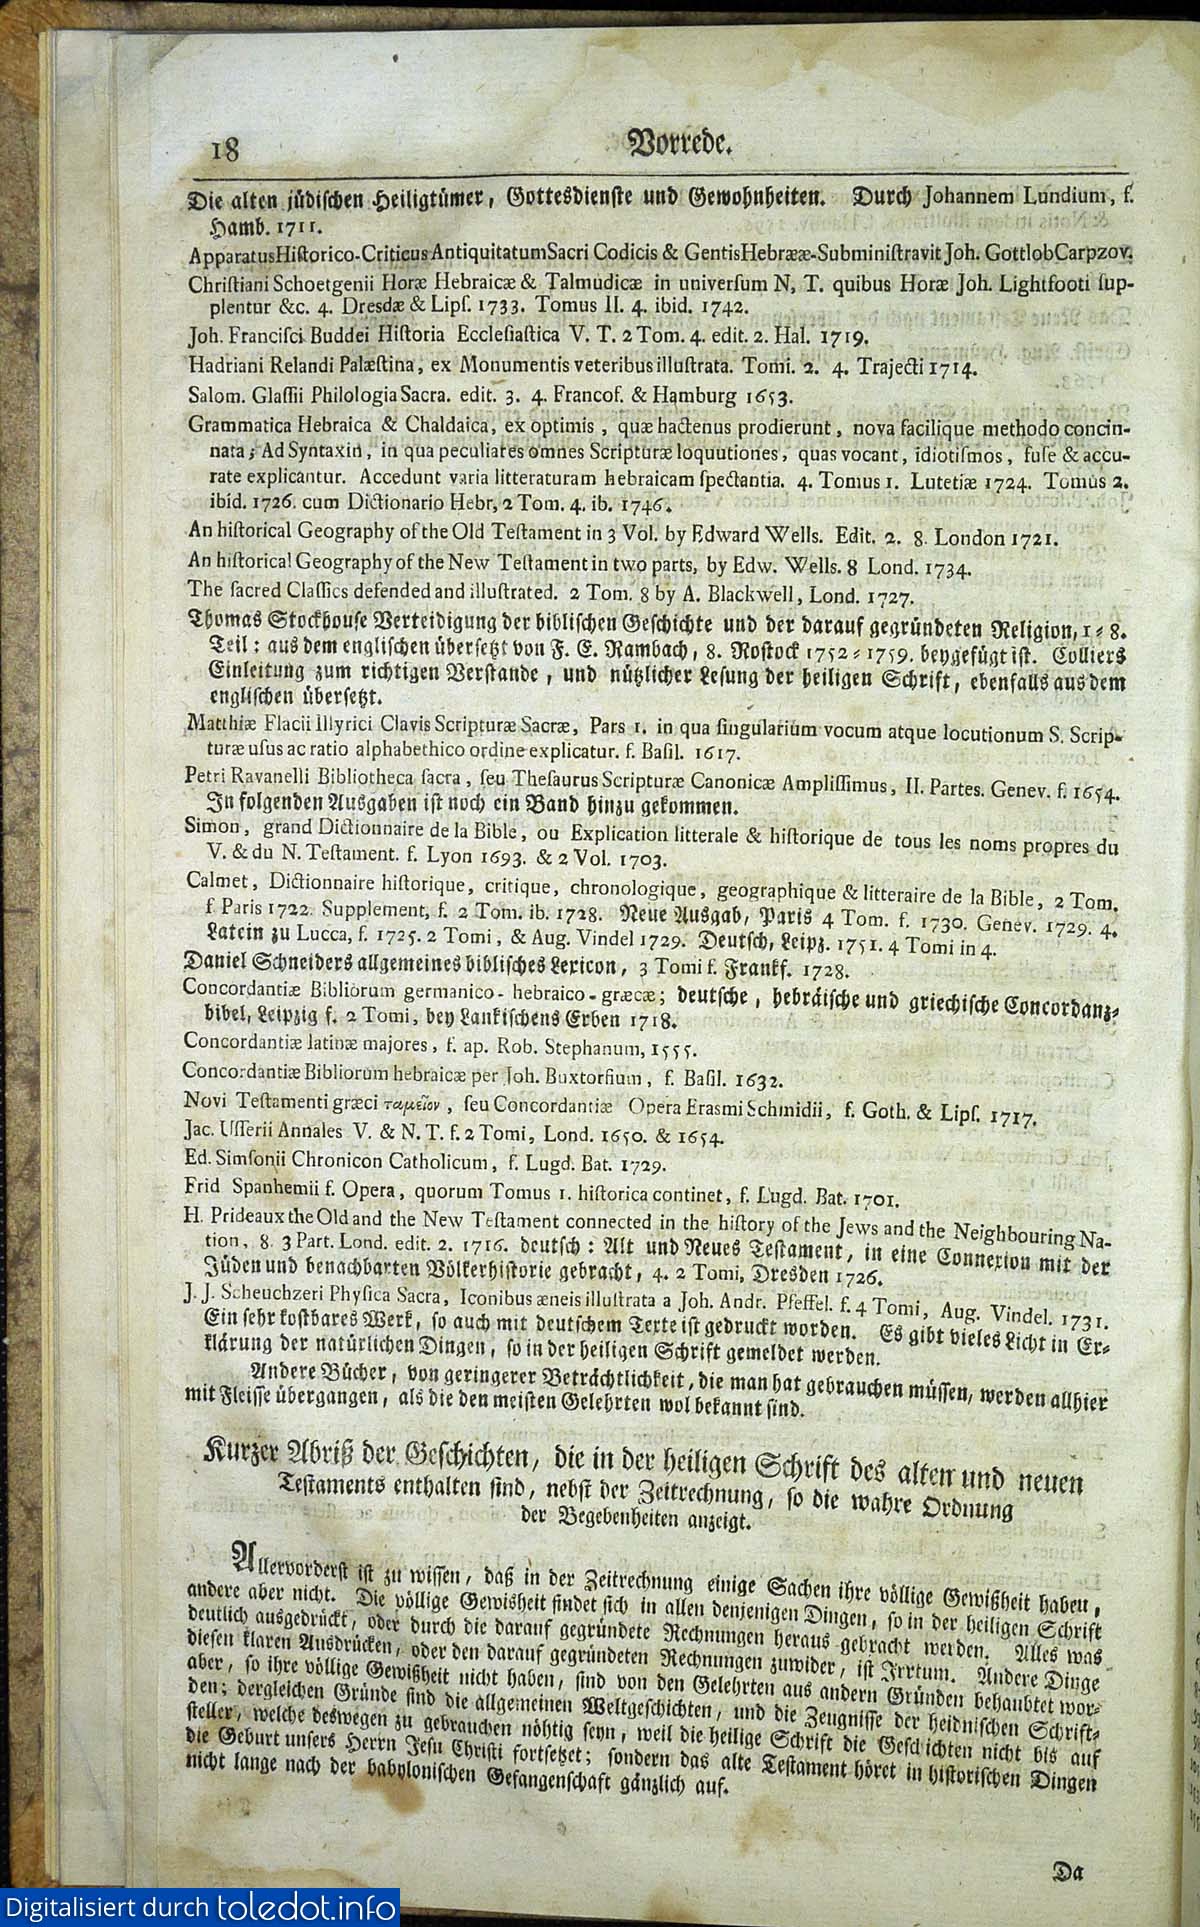 18 Vorrede.
Die alten jüdischen Heiligtümer, Gottesdienste und Gewohnheiten. Durch Johannem Lundium, f.
Hamb. 1711.
Apparatus Historico-Criticus Antiquitatum Sacri Codicis & Gentis Hebrææ-Subministravit Joh. Gottlob Carpzov.
Christiani Schoetgenii Horæ Hebraicæ & Talmudicæ in universum N, T. quibus Horæ Joh. Lightfooti sup-
plentur &c. 4. Dresdæ & Lips. 1733. Tomus II. 4. ibid. 1742.
Joh. Francisci Buddei Historia Ecclesiastica V. T. 2 Tom. 4. edit. 2. Hal. 1719.
Hadriani Relandi Palæstina, ex Monumentis veteribus illustrata. Tomi. 2. 4. Trajecti 1714.
Salom. Glassii Philologia Sacra. edit. 3. 4. Francof. & Hamburg 1653.
Grammatica Hebraica & Chaldaica, ex optimis, quæ hactenus prodierunt, nova facilique methodo concin-
nata; Ad Syntaxin, in qua peculiares omnes Scripturæ loquutiones, quas vocant, idiotismos, fuse & accu-
rate explicantur. Accedunt varia litteraturam hebraicam spectantia. 4. Tomus 1. Lutetiæ 1724. Tomus 2.
ibid. 1726. cum Dictionario Hebr, 2 Tom. 4. ib. 1746.
An historical Geography of the Old Testament in 3 Vol. by Edward Wells. Edit. 2. 8. London 1721.
An historical Geography of the New Testament in two parts, by Edw. Wells. 8 Lond. 1734.
The sacred Classics defended and illustrated. 2 Tom. 8 by A. Blackwell, Lond. 1727.
Thomas Stockhouse Verteidigung der biblischen Geschichte und der darauf gegründeten Religion, 1-8.
Teil: aus dem englischen übersetzt von F. E. Rambach, 8. Rostock 1752-1759. beygefügt ist. Colliers
Einleitung zum richtigen Verstande, und nützlicher Lesung der heiligen Schrift, ebenfalls aus dem
englischen übersetzt.
Matthiæ Flacii Illyrici Clavis Scripturæ Sacræ, Pars 1. in qua singularium vocum atque locutionum S. Scrip-
turæ usus ac ratio alphabethico ordine explicatur. f. Basil. 1617.
Petri Ravanelli Bibliotheca sacra, seu Thesaurus Scripturæ Canonicæ Amplissimus, II. Partes. Genev. f. 1654.
In folgenden Ausgaben ist noch ein Band hinzu gekommen.
Simon, grand Dictionnaire de la Bible, ou Explication litterale & historique de tous les noms propres du
V. & du N. Testament. f. Lyon 1693. & 2 Vol. 1703.
Calmet, Dictionnaire historique, critique, chronologique, geographique & litteraire de la Bible, 2 Tom.
f Paris 1722. Supplement, f. 2 Tom. ib. 1728. Neue Ausgab, Paris 4 Tom. f. 1730. Genev. 1729. 4.
Latein zu Lucca, f. 1725. 2 Tomi, & Aug. Vindel 1729. Deutsch, Leipz. 1751. 4 Tomi in 4.
Daniel Schneiders allgemeines biblisches Lexicon, 3 Tomi f. Frankf. 1728.
Concordantiæ Bibliorum germanico-hebraico-græcæ; deutsche, hebräische und griechische Concordanz-
bibel, Leipzig f. 2 Tomi, bey Lankischens Erben 1718.
Concordantiæ latinæ majores, f. ap. Rob. Stephanum, 1555.
Concordantiæ Bibliorum hebraicæ per Joh. Buxtorfium, f. Basil. 1632.
Novi Testamenti græci ταμεῖον, seu Concordantiæ Opera Erasmi Schmidii, f. Goth. & Lips. 1717.
Jac. Usserii Annales V. & N. T. f. 2 Tomi, Lond. 1650. & 1654.
Ed. Simsonii Chronicon Catholicum, f. Lugd. Bat. 1729.
Frid Spanhemii f. Opera, quorum Tomus 1. historica continet, f. Lugd. Bat. 1701.
H. Prideaux the Old and the New Testament connected in the history of the Jews and the Neighbouring Na-
tion, 8. 3 Part. Lond. edit. 2. 1716. deutsch: Alt und Neues Testament, in eine Connexion mit der
Jüden und benachbarten Völkerhistorie gebracht, 4. 2 Tomi, Dresden 1726.
J. J. Scheuchzeri Physica Sacra, Iconibus æneis illustrata a Joh. Andr. Pfeffel. f. 4 Tomi, Aug. Vindel. 1731.
Ein sehr kostbares Werk, so auch mit deutschem Texte ist gedruckt worden. Es gibt vieles Licht in Er-
klärung der natürlichen Dingen, so in der heiligen Schrift gemeldet werden.
Andere Bücher, von geringerer Beträchtlichkeit, die man hat gebrauchen müssen, werden allhier
mit Fleisse übergangen, als die den meisten Gelehrten wol bekannt sind.
Kurzer Abriß der Geschichten, die in der heiligen Schrift des alten und neuen
Testaments enthalten sind, nebst der Zeitrechnung, so die wahre Ordnung
der Begebenheiten anzeigt.
Allervorderst ist zu wissen, daß in der Zeitrechnung einige Sachen ihre völlige Gewißheit haben,
andere aber nicht. Die völlige Gewisheit findet sich in allen denjenigen Dingen, so in der heiligen Schrift
deutlich ausgedrückt, oder durch die darauf gegründete Rechnungen heraus gebracht werden. Alles was
diesen klaren Ausdrücken, oder den darauf gegründeten Rechnungen zuwider, ist Irrtum. Andere Dinge
aber, so ihre völlige Gewißheit nicht haben, sind von den Gelehrten aus andern Gründen behaubtet wor-
den; dergleichen Gründe sind die allgemeinen Weltgeschichten, und die Zeugnisse der heidnischen Schrift-
steller, welche deswegen zu gebrauchen nöhtig seyn, weil die heilige Schrift die Geschichten nicht bis auf
die Geburt unsers Herrn Jesu Christi fortsetzet; sondern das alte Testament höret in historischen Dingen
nicht lange nach der babylonischen Gefangenschaft gänzlich auf.
Da
Digitalisiert durch toledot.info